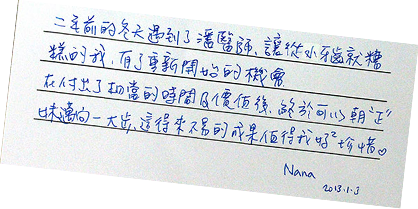 二年前的冬天遇到了潘醫師，讓從小牙齒就糟
糕的我，有了重新開始的機會
在付出了相當的時間及價值後，終於可以朝“正”
妹邁向一大步，這得來不易的成果值得我好²珍惜♡
Nana
2013.1.3